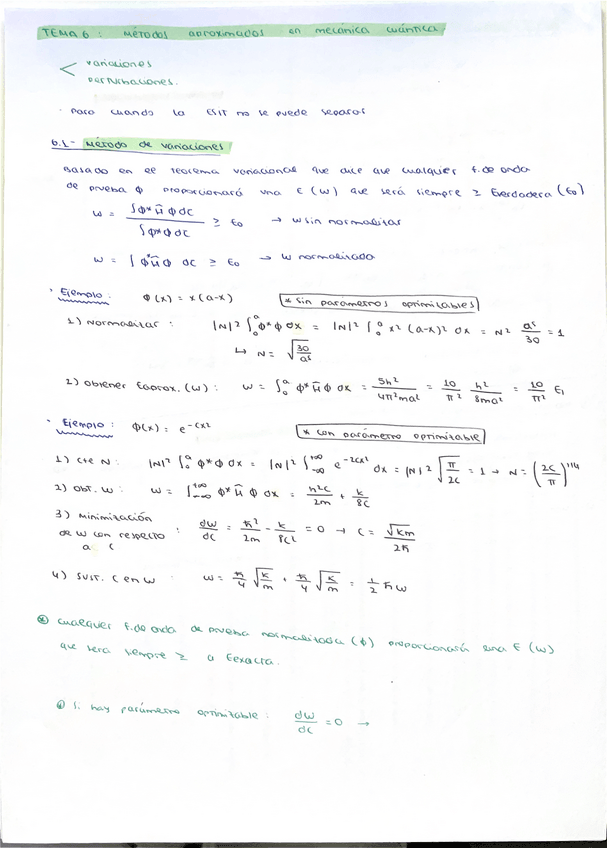 TEMA 6: Métodos aproximados en mecánica cuántica
< variaciones
perturbaciones.
· Para cuando la ESIT no se puede separar
6.1- Método de variaciones
Basado en el teorema variacional que dice que cualquier f. de onda
de prueba φ proporcionará una E (W) que será siempre ≥ Everdadera (E₀)
W = ∫φ* Ĥ φ dτ / ∫φ*φ dτ ≥ E₀ → W sin normalizar
W = ∫φ* Ĥ φ dτ ≥ E₀ → W normalizada
· Ejemplo: φ(x) = x(a-x) * sin parámetros optimizables
1) Normalizar: |N|² ∫₀ᵃ φ*φ dx = |N|² ∫₀ᵃ x² (a-x)² dx = N² a⁵/30 = 1
↳ N = √(30/a⁵)
2) Obtener Eaprox. (W): W = ∫₀ᵃ φ* Ĥ φ dx = 5h²/4π²ma² = 10/π² h²/8ma² = 10/π² E₁
· Ejemplo: φ(x) = e^(-cx²) * con parámetro optimizable
1) Cte N: |N|² ∫₀ᵃ φ*φ dx = |N|² ∫₋∞^+∞ e^(-2cx²) dx = |N|² √(π/2c) = 1 → N = (2c/π)^1/4
2) Obt. W: W = ∫₋∞^+∞ φ* Ĥ φ dx = ħ²c/2m + k/8c
3) Minimización
de W con respecto : dW/dc = ħ²/2m - k/8c² = 0 → c = √km/2ħ
a c
4) Sust. c en W: W = ħ/4 √(k/m) + ħ/4 √(k/m) = 1/2 ħω
* Cualquier f. de onda de prueba normalizada (φ) proporcionará una E (W)
que será siempre ≥ a Eexacta.
Si hay parámetro optimizable: dW/dc = 0 →